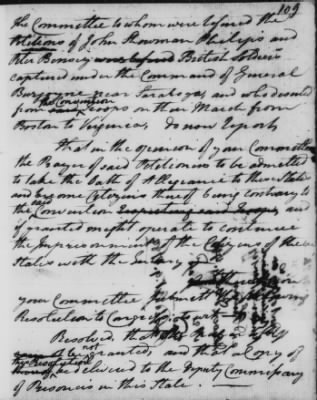 109
The Committee to whom were referred the
Petitions of John Showman Philips and
Peter Bensey were referred British Soldiers
captured under the Command of General
Burgoyne near Saratoga, and who deserted
from the Convention troops on their March from
Boston to Virginia, do now Report
That in the opinion of your Committee
the Prayer of said Petitioners to be admitted
to take the Oath of Allegiance to these States
and become Citizens thereof being contrary to
the said Convention and
if granted might operate to continue
the Imprisonment of the Citizens of these
States with the Enemy
your Committee submit the following
Resolution to Congress, to wit
Resolved, that the Prayer of the
be not granted, and that a Copy of
this resolution be delivered to the Deputy Commissary
of Prisoners in this State.